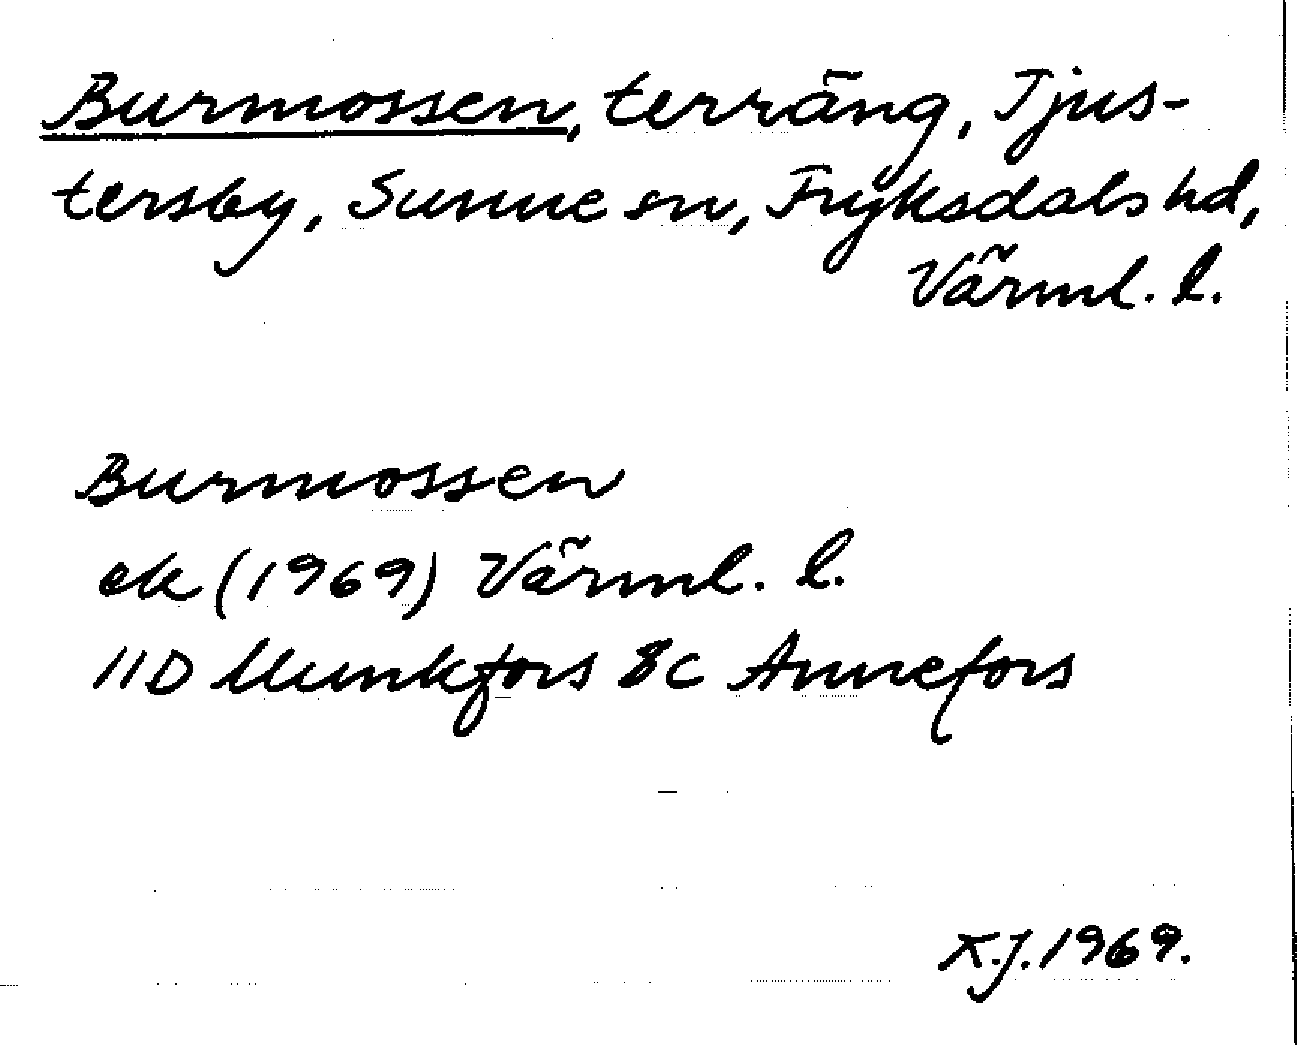 Burmossen, terräng, Tjus-
tersby, Sunne sn, Fryksdals hd,
Värml. l.
Burmossen
ek (1969) Värml. l.
11D Munkfors 8C Annefors
K.J. 1969.